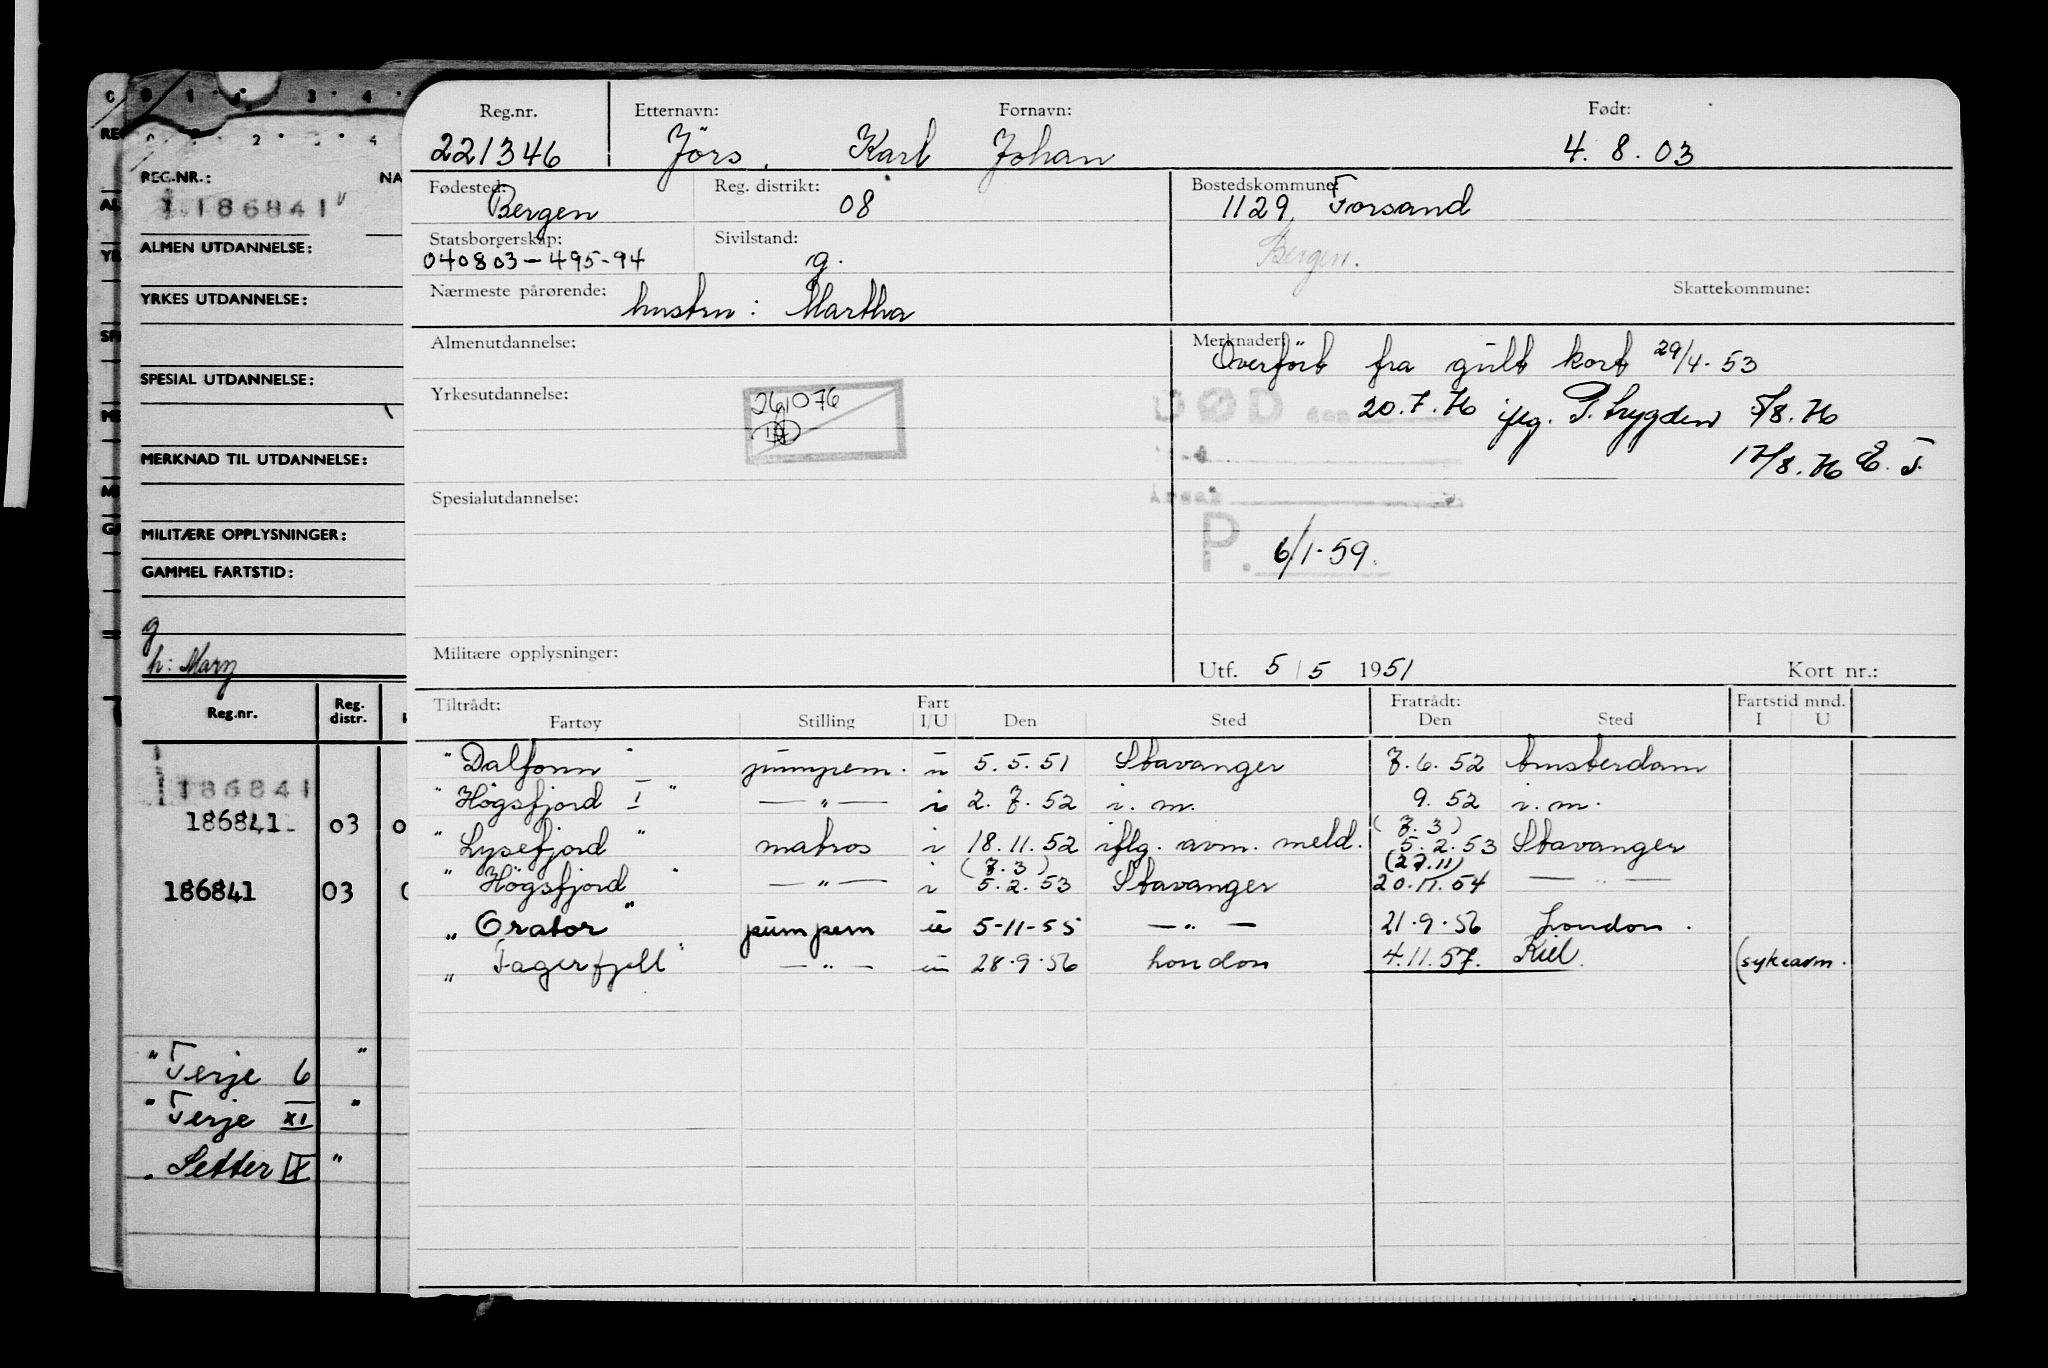 C 0 1 3 4
RE
0 2 3 4
REG.NR.: NA
186841
AL
ALMEN UTDANNELSE:
YR
YRKES UTDANNELSE:
SP
SPESIAL UTDANNELSE:
ME
MERKNAD TIL UTDANNELSE:
MI
G
MILITÆRE OPPLYSNINGER:
GAMMEL FARTSTID:
g
h: Mary
Reg.nr. Reg. distr.
186841
186841 03 0
186841 03 0
"Terje 6 "
"Terje XI "
"Setter IX "
Reg.nr. Etternavn: Fornavn: Født:
221346 Jörs, Karl Johan 4. 8. 03
Fødested: Reg. distrikt: Bostedskommune:
Bergen 08 1129, Forsand
Statsborgerskap: Sivilstand: Bergen.
040803-495-94 g.
Nærmeste pårørende: Skattekommune:
hustru: Martha
Almenutdannelse: Merknader:
Overfört fra gult kort 29/4-53
Yrkesutdannelse:
261076
DØD den 20.7.76 iflg. P. trygden 5/8.76
17/8.76 E. T.
Spesialutdannelse:
P. 6/1-59.
Militære opplysninger:
Utf. 5/5 1951 Kort nr.:
Tiltrådt: Fart Fratrådt: Fartstid mnd.
Fartøy Stilling I/U Den Sted Den Sted I U
"Dalfonn" pumpem. u 5.5.51 Stavanger 7.6.52 Amsterdam
"Högsfjord I" —"— i 2.7.52 i. m. 9.52 i. m.
(7.3)
"Lysefjord" matros i 18.11.52 iflg. avm. meld. 5.2.53 Stavanger
(7.3) (27.11)
"Högsfjord" —"— i 5.2.53 Stavanger 20.11.54 —"—
"Orator" pumpem u 5-11-55 —"— 21.9.56 London.
"Fagerfjell" —"— u 28.9.56 London 4.11.57. Kiel. (sykeavm.